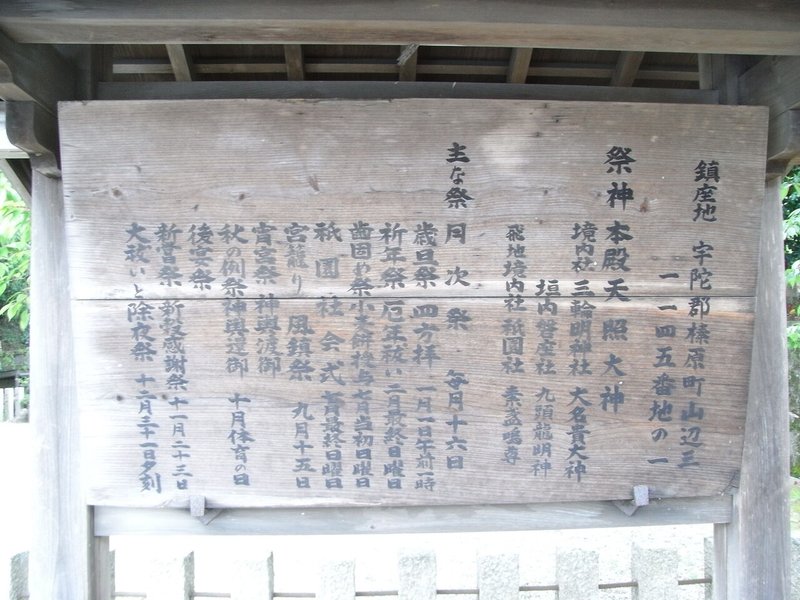 鎮座地 宇陀郡榛原町山辺三
一一四五番地の一
祭神 本殿 天照大神
境内社 三輪明神社 大名貴大神
垣内磐座社 九頭龍明神
飛地境内社 祇園社 素盞嗚尊
主な祭 月次祭 毎月十六日
歳旦祭 四方拝 一月一日午前一時
祈年祭 厄年祓い 二月最終日曜日
歯固め祭 小麦餅授与 七月当初日曜日
祇園社会式 七月最終日曜日
宮籠り 風鎮祭 九月十五日
宵宮祭 神輿渡御
秋の例祭 神輿還御 十月体育の日
後宴祭
新嘗祭 新穀感謝祭 十一月二十三日
大祓いと除夜祭 十二月三十一日夕刻